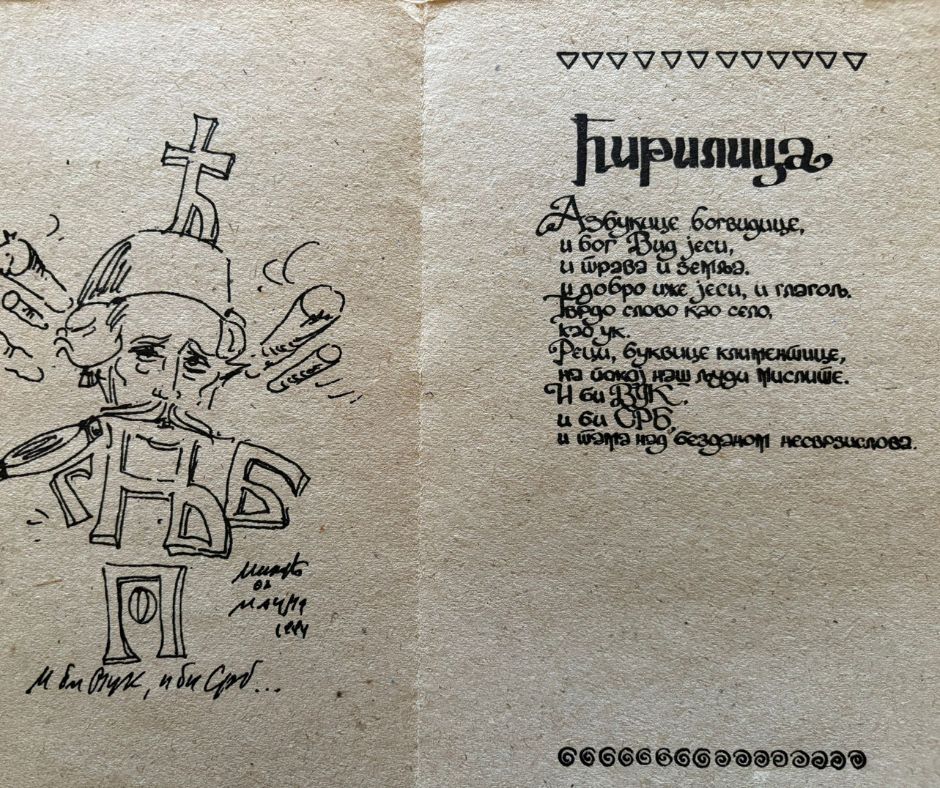 Њ Б
П
И би Вук, и би Срб...
Ћирилица
Азбукице богвидице,
и бог Вид јеси,
и трава и земља.
и добро иже јеси, и глагољ.
Тврдо слово као село,
као ук.
Реци, буквице климентице,
на покој наш људи мислите.
И би ВУК,
и би СРБ,
и тама над безданом несврзислова.